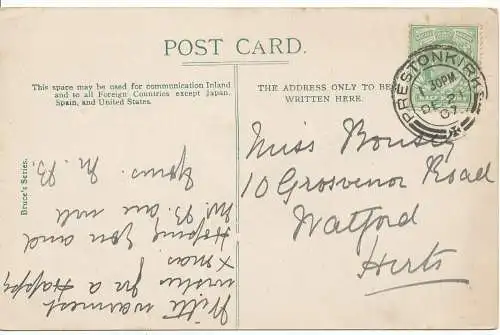 POST CARD.
This space may be used for communication Inland
and to all Foreign Countries except Japan,
Spain, and United States.
THE ADDRESS ONLY TO BE
WRITTEN HERE.
Bruce's Series.
PRESTONKIRK
30PM
DE 2
07
Miss
10 Grosvenor Road
Watford
Herts
With warmest
wishes for a Happy
Xmas
Hoping you and
Mr. B. are well
Yours M. B.